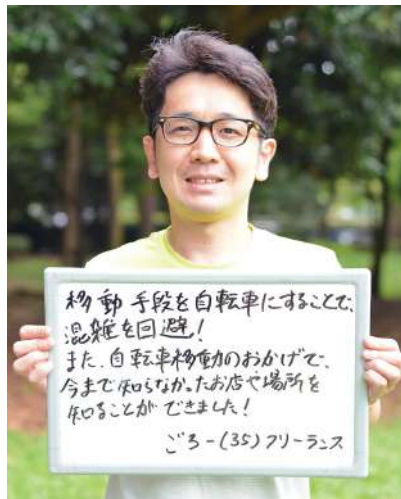 移動手段を自転車にすることで、
混雑を回避!
また、自転車移動のおかげで、
今まで知らなかったお店や場所を
知ることができました!
ごろー(35)フリーランス